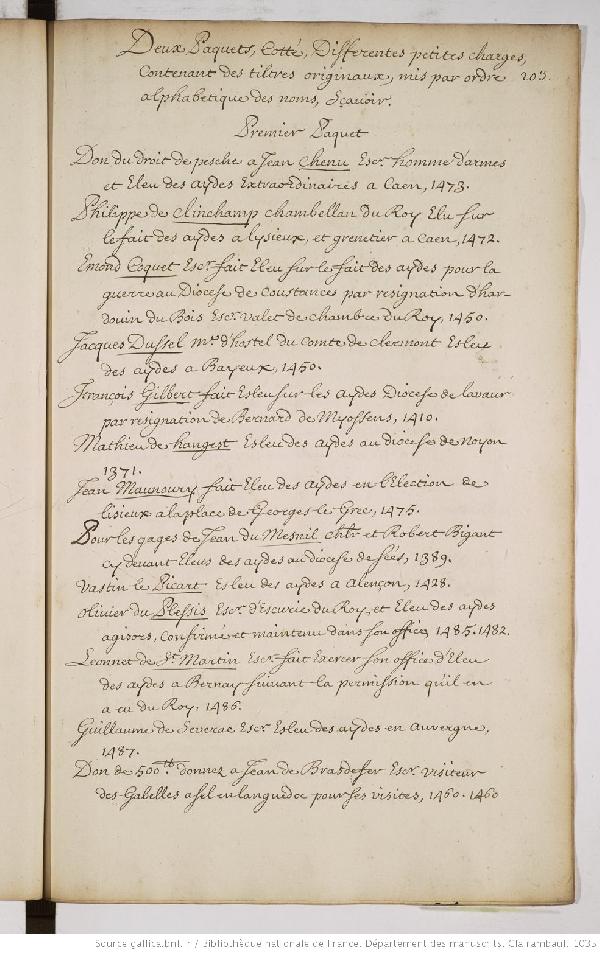 Deux Paquets, Cotté, Differentes petites charges,
Contenant des tiltres originaux, mis par ordre 203.
alphabetique des noms, Sçavoir.
Premier Paquet
Don du droit de pesche a Jean Chenu Escr. homme d'armes
et Eleu des aydes Extraordinaires a Caen, 1473.
Philippe de Clinchamp Chambellan du Roy Elu sur
le fait des aydes a lysieux, et grenetier a Caen, 1472.
Emond Coquet Escr. fait Eleu sur le fait des aydes pour la
guerre au Diocese de Coustances par resignation d'har-
douin du Bois Escr. valet de chambre du Roy, 1450.
Jacques Dussel me. d'hostel du Comte de Clermont Esleu
des aydes a Bayeux, 1450.
François Gilbert fait Esleu sur les aydes Diocese de lavaur
par resignation de Bernard de Myossens, 1410.
Mathieu de hangest Esleu des aydes au diocese de Noyon
1371.
Jean Maunoury fait Eleu des aydes en l'Election de
lisieux a la place de Georges le Grec, 1475.
Pour les gages de Jean du Mesnil chlr. et Robert Bigant
cy devant Eleus des aydes au diocese de Sées, 1389.
Vastin le Picart Esleu des aydes a Alençon, 1428.
Olivier du Plessis Escr. d'Escurie du Roy, et Eleu des aydes
agisors, Confirmé et maintenu dans son office, 1485. 1482.
Leonnet de St. Martin Escr. fait Exercer son office d'Eleu
des aydes a Bernay suivant la permission qu'il en
a eu du Roy, 1486.
Guillaume de Severac Escr. Esleu des aydes en Auvergne,
1487.
Don de 500 tt. donnez a Jean de Brasdefer Escr. Visiteur
des Gabelles a sel en languedoc pour ses visites, 1460. 1460
Source gallica.bnf.fr / Bibliothèque nationale de France. Département des manuscrits. Clairambault 1035